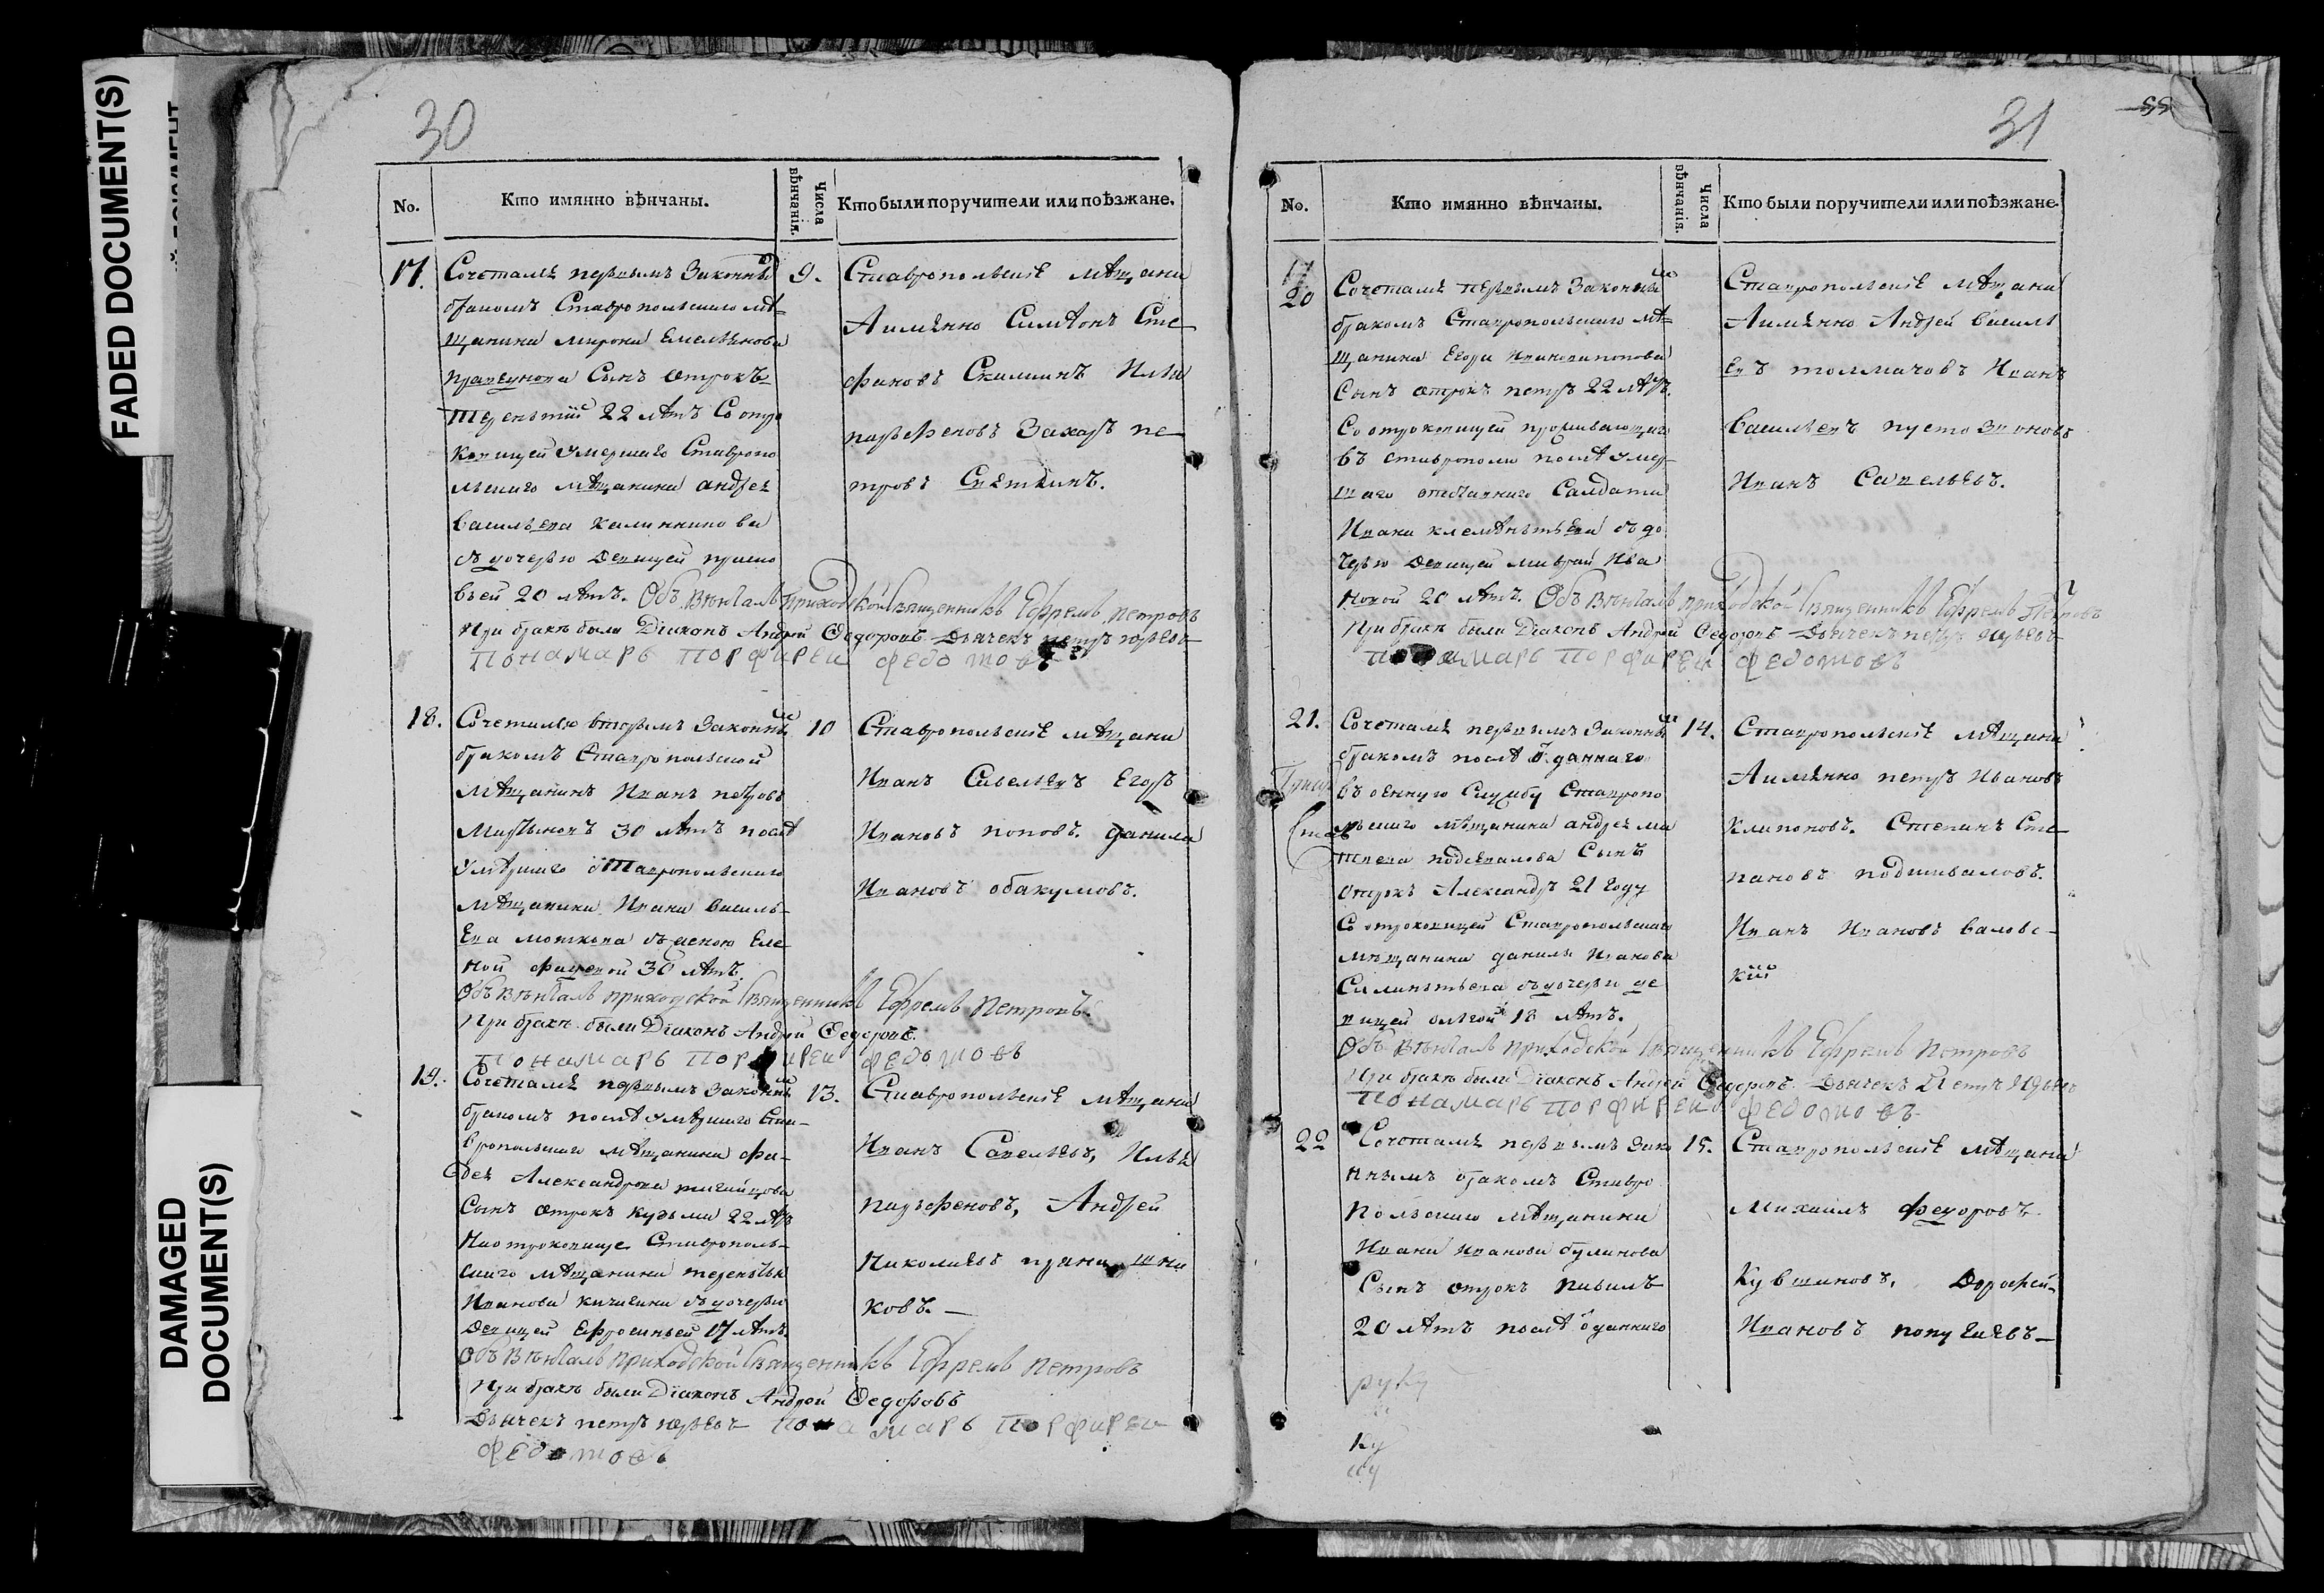 FADED DOCUMENT(S)
DAMAGED
DOCUMENT(S)
30
No.
Кто имянно вѣнчаны.
Числа вѣнчанія.
Кто были поручители или поѣзжане.
17.
Сочеталсѧ первымъ Законны͏̑м
бракомъ Ставропольскаго мѣ-
щанина мирона Емельѧнова
Сынъ отрокъ
терентий 22 лѣтъ Со отро
ковицей умершаго Ставропо
льскаго мѣщанина андреѧ
васильева калиннико ва
съ дочерью девицей праско
вьей 20 лѣтъ. Объ Вѣнчалъ приходской Священникъ Ефремъ петровъ
При бракѣ были Діаконъ Андрей Ѳедоровъ Дьячекъ петръ юрьевъ
Понамарь Порфиреи федотовъ
9.
Ставропольские мѣщани
Аимѧнно Симѣонъ Сте
фановъ Илья
парфеновъ Захаръ пе
тровъ
18.
Сочетался вторымъ Законны
бракомъ Ставропольской
мѣщанинъ Иванъ петровъ
мартыновъ 30 лѣтъ послѣ
умѣршаго ставропольскаго
мѣщанина Ивана василь-
Ева моткова съ женою Еле
ной 30 лѣтъ.
Объ Вѣнчалъ приходской Священникъ Ефремъ Петровъ
При бракѣ были Діаконъ Андрей Ѳедоровъ.
Понамарь Порфиреи федотовъ
10
Ставропольские мѣщани
Иванъ Савельевъ Егоръ
Ивановъ поповъ. данила
Ивановъ обакумовъ.
19.
Сочеталсѧ первымъ Законны
бракомъ послѣ умѣршаго Ста-
вропольскаго мѣщанина фа-
деѧ Александрова
Сынъ отрокъ кузьма 22 лѣтъ
На отроковице Ставрополь-
скаго мѣщанина терентьѧ
Иванова съ дочерью
Девицей Ефросиньей 17 лѣтъ.
Объ Вѣнчалъ приходской Священникъ Ефремъ Петровъ
При бракѣ были Діаконъ Андрей Ѳедоровъ
Дьячекъ петръ юрьевъ Понамарь Порфиреи
федотовъ
13.
Ставропольские мѣщани
Иванъ Савельевъ, Илья
парфеновъ, Андрей
Николаевъ
ковъ.
31
55
No.
Кто имянно вѣнчаны.
Числа вѣнчанія.
Кто были поручители или поѣзжане.
17
20
Сочеталсѧ первымъ Законны
бракомъ Ставропольскаго мѣ-
щанина Егора Иванова попова
Сынъ отрокъ петръ 22 лѣтъ.
Со отроковицей проживающаго
въ ставрополи послѣ умер-
шаго отставнаго Салдата
Ивана клемѣнтьева съ до
черью девицей маврай Ива
новой 20 лѣтъ. Объ Вѣнчалъ приходской Священникъ Ефремъ Петровъ
При бракѣ были Діаконъ Андрей Ѳедоровъ Дьячекъ петръ юрьевъ
Понамарь Порфиреи федотовъ
Ставропольские мѣщани
Аимѧнно Андрей василь
Евъ толмачовъ Иванъ
васильевъ пустозвоновъ
Иванъ Савельевъ.
21.
Сочеталсѧ первымъ Законны
бракомъ послѣ отданнаго
въ оенную Службу Ставропо
льскаго мѣщанина андреѧ ма
твева Сынъ
отрокъ Александръ 21 году
Со отроковицей Ставропольскаго
мѣщанина данилы Иванова
Силинтьева съ дочерью де
вицей ольгой 18 лѣтъ.
Объ Вѣнчалъ приходской Священникъ Ефремъ Петровъ
При бракѣ были Діаконъ Андрей Ѳедоровъ Дьячекъ Петръ Юрьевъ
Понамарь Порфиреи федотовъ
14.
Ставропольские мѣщани
Аимѧнно петръ Ивановъ
Степанъ Сте
пановъ подшиваловъ.
Иванъ Ивановъ валовс-
кий
22
Сочеталсѧ первымъ Зако
ннымъ бракомъ Ставро
Польскаго мѣщанина
Ивана Иванова буланова
Сынъ отрокъ павилъ
20 лѣтъ послѣ отданнаго
15.
Ставропольские мѣщани
Михаилъ федоровъ
Кувшиновъ, Дорофей
Ивановъ попугаевъ
руку
Ку